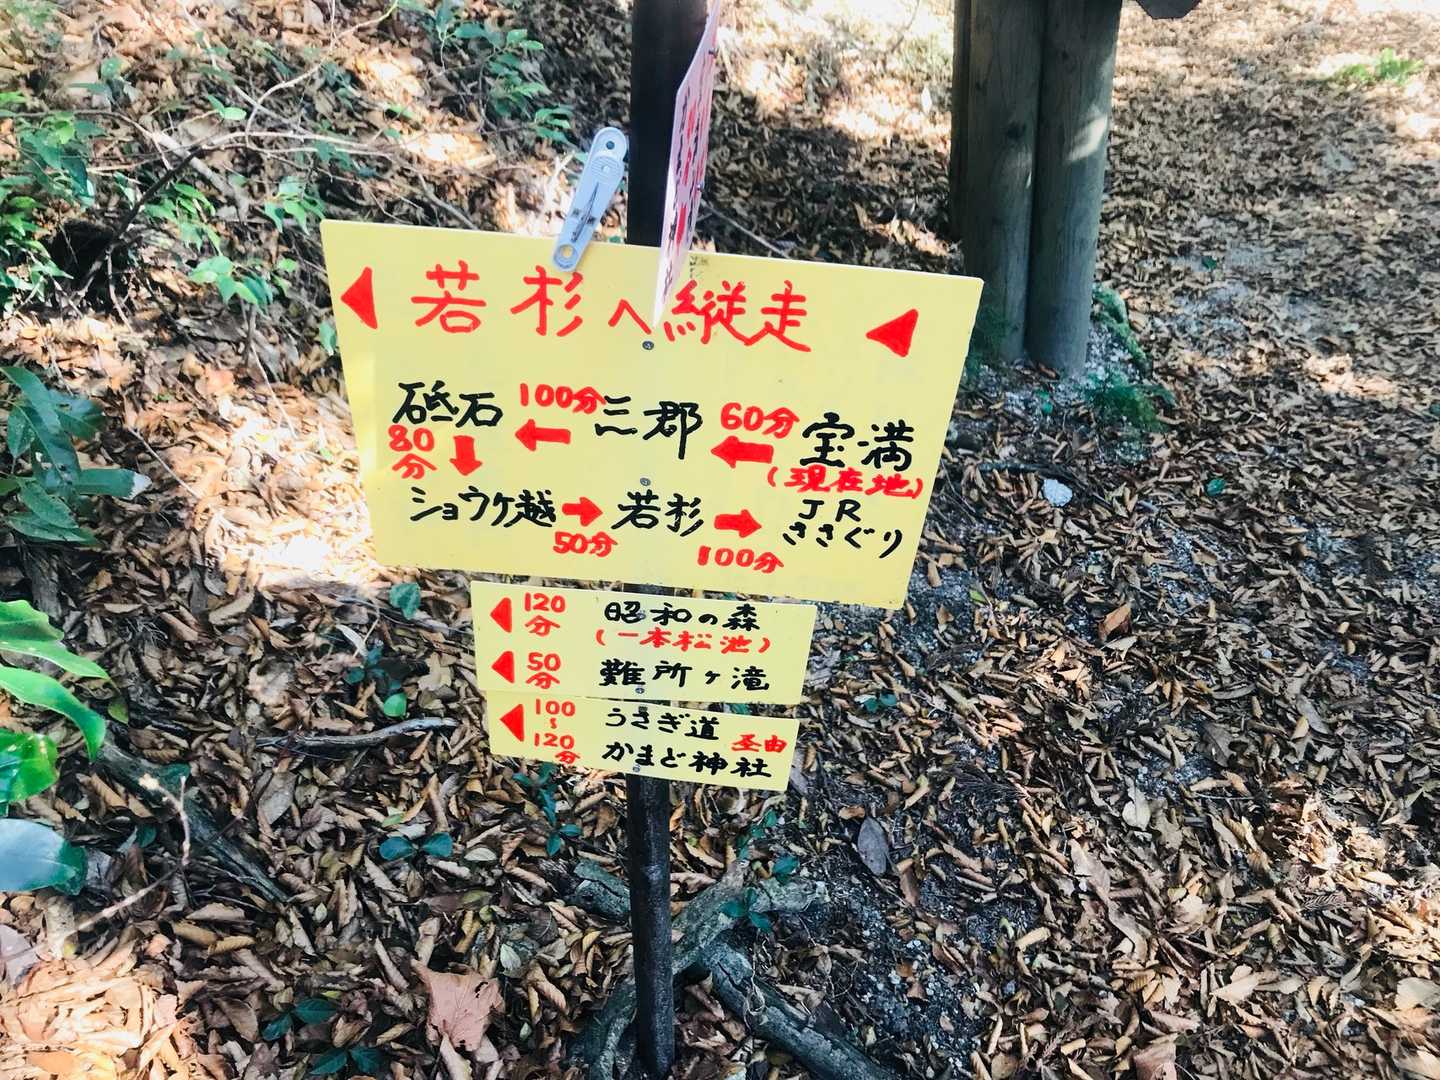 若杉へ縦走
砥石 100分 三郡 60分 宝満
80分 (現在地)
ショウケ越 若杉 JR
ささぐり
50分 100分
120分 昭和の森
(一本松池)
50分 難所ヶ滝
100~120分 うさぎ道 圣由
かまど神社